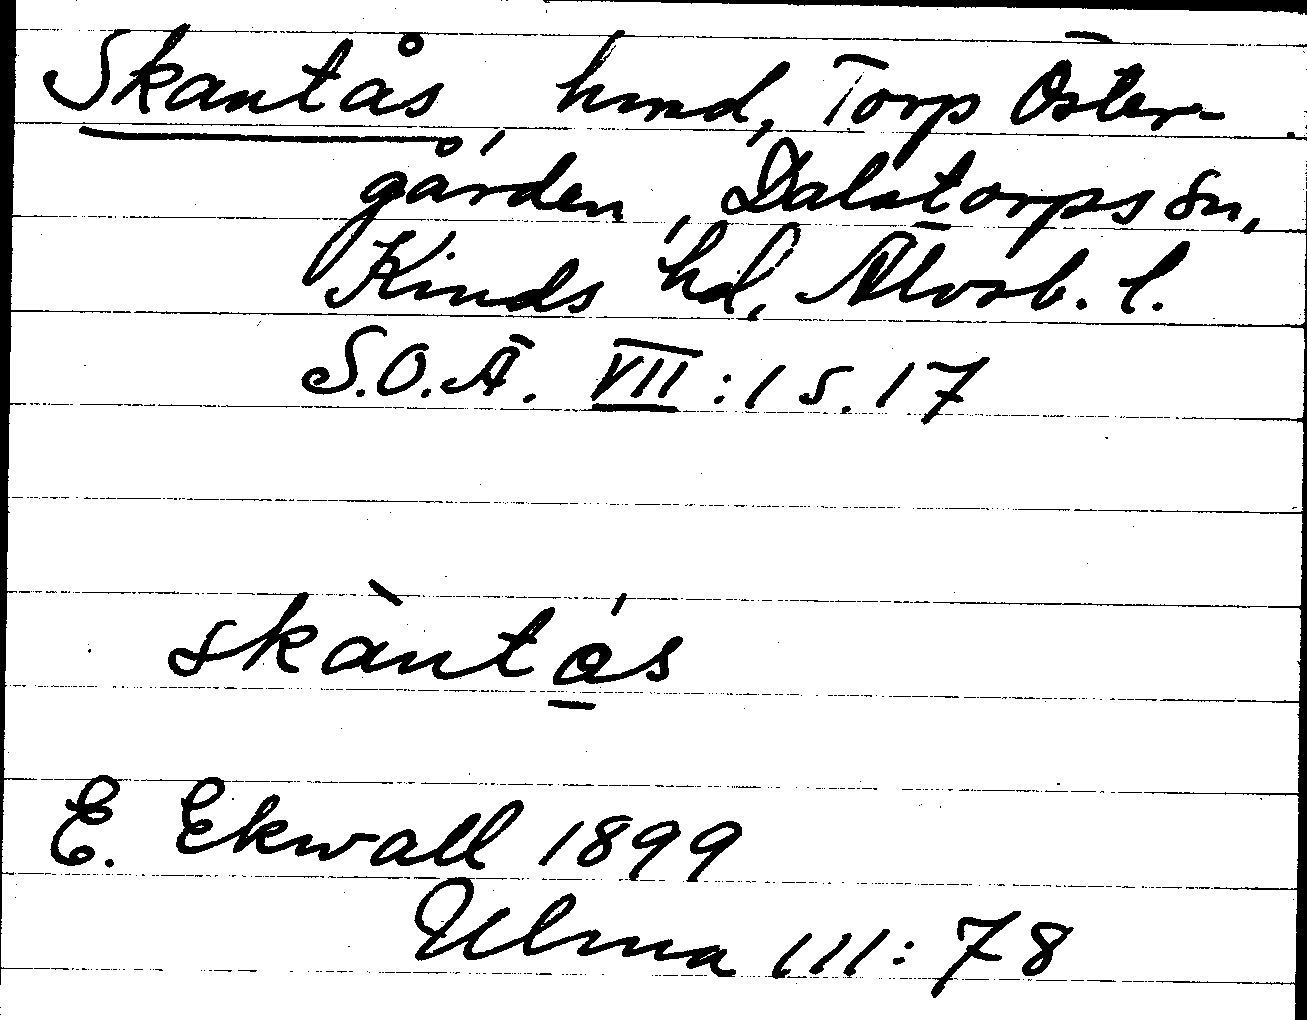 Skantås, hmd, Torp Öster-
gården, Dalstorps sn,
Kinds hd, Älvsb. l.
S.O.Ä. VII:1 s. 17
skàntás
E. Ekwall 1899
Ulma 111:78